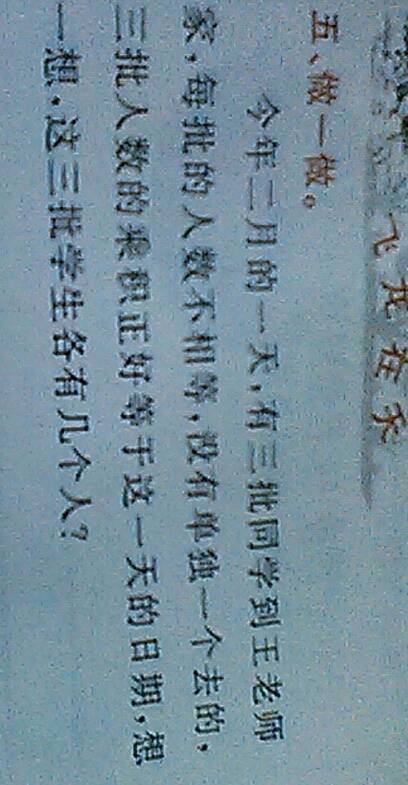 飞龙在天
五、做一做。
今年二月的一天,有三批同学到王老师
家,每批的人数不相等,没有单独一个去的,
三批人数的乘积正好等于这一天的日期,想
一想,这三批学生各有几个人?